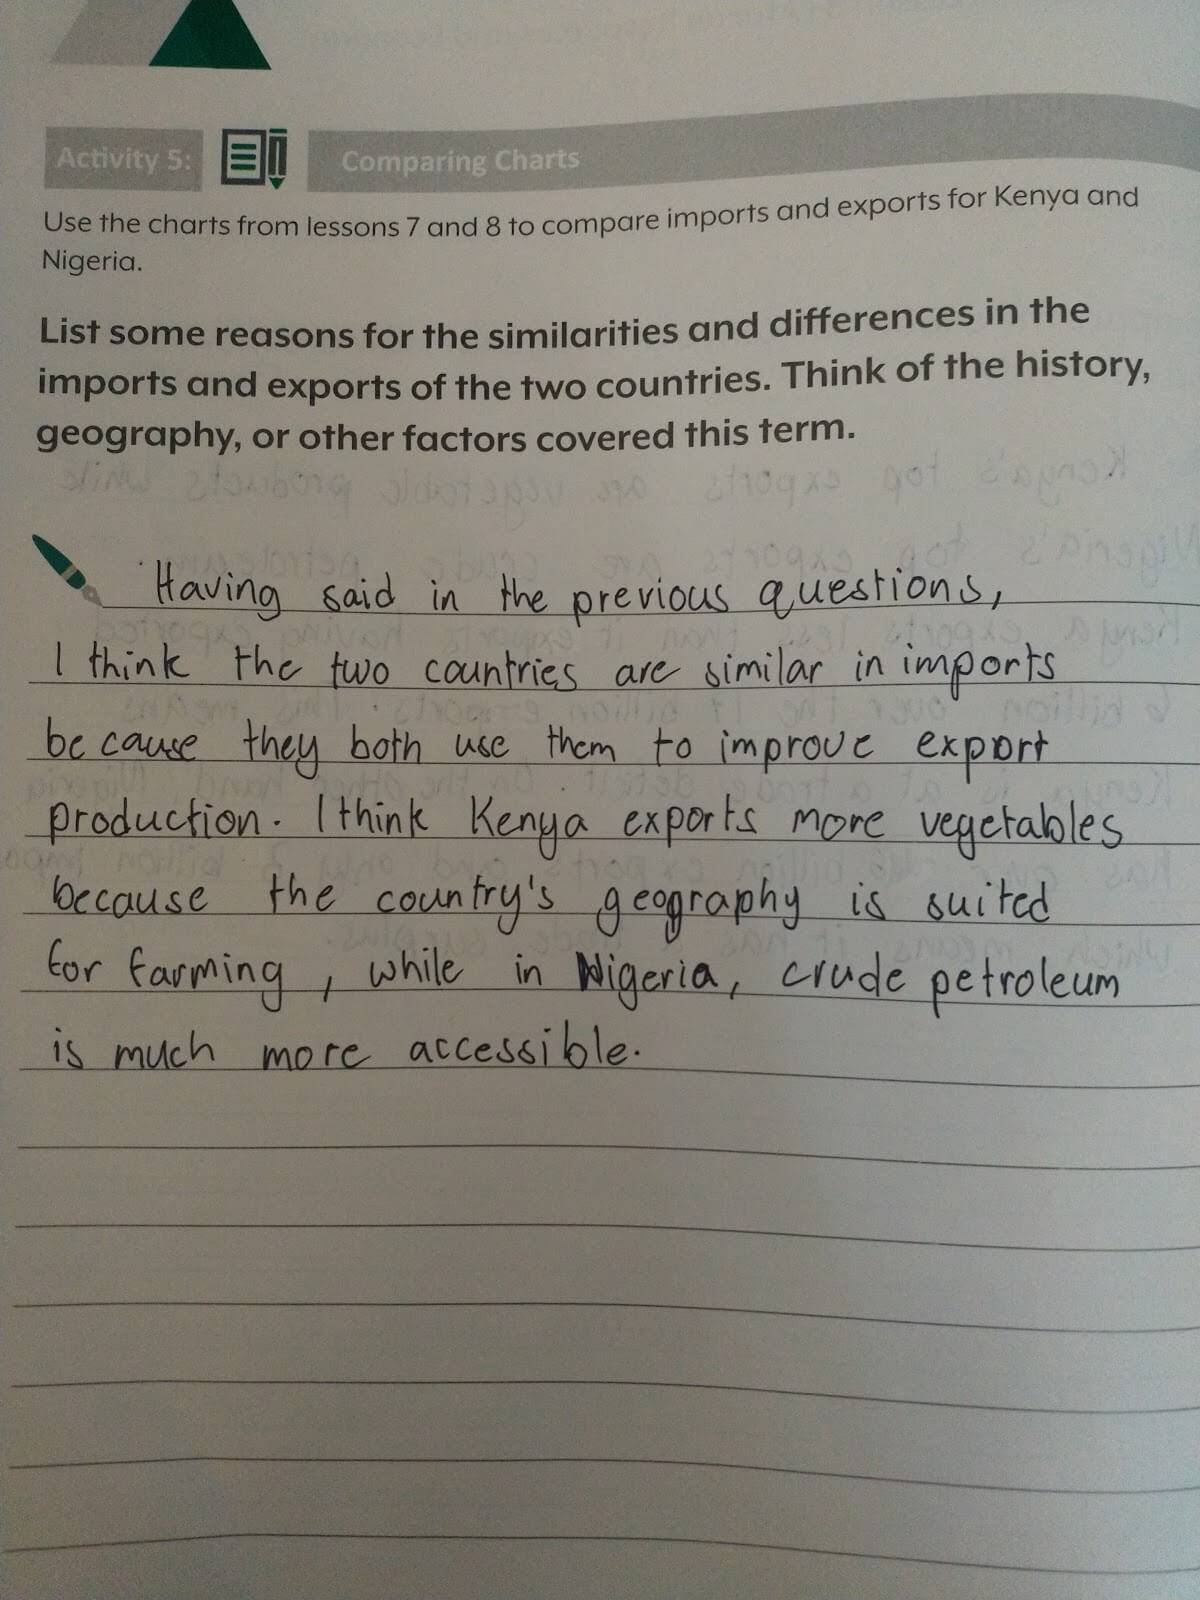 Activity 5:
Comparing Charts
Use the charts from lessons 7 and 8 to compare imports and exports for Kenya and
Nigeria.
List some reasons for the similarities and differences in the
imports and exports of the two countries. Think of the history,
geography, or other factors covered this term.
Having said in the previous questions,
I think the two countries are similar in imports
because they both use them to improve export
production. I think Kenya exports more vegetables
because the country's geography is suited
for farming, while in Nigeria, crude petroleum
is much more accessible.